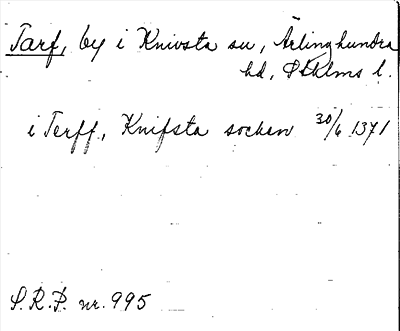 Tarf, by i Knivsta sn, Ärlinghundra
hd, Sthlms l.
i Terff, Knifsta socken 30/6 1371
S.R.P. nr. 995